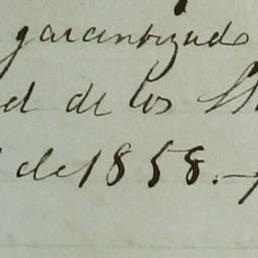 garantizado
de los
de 1858.